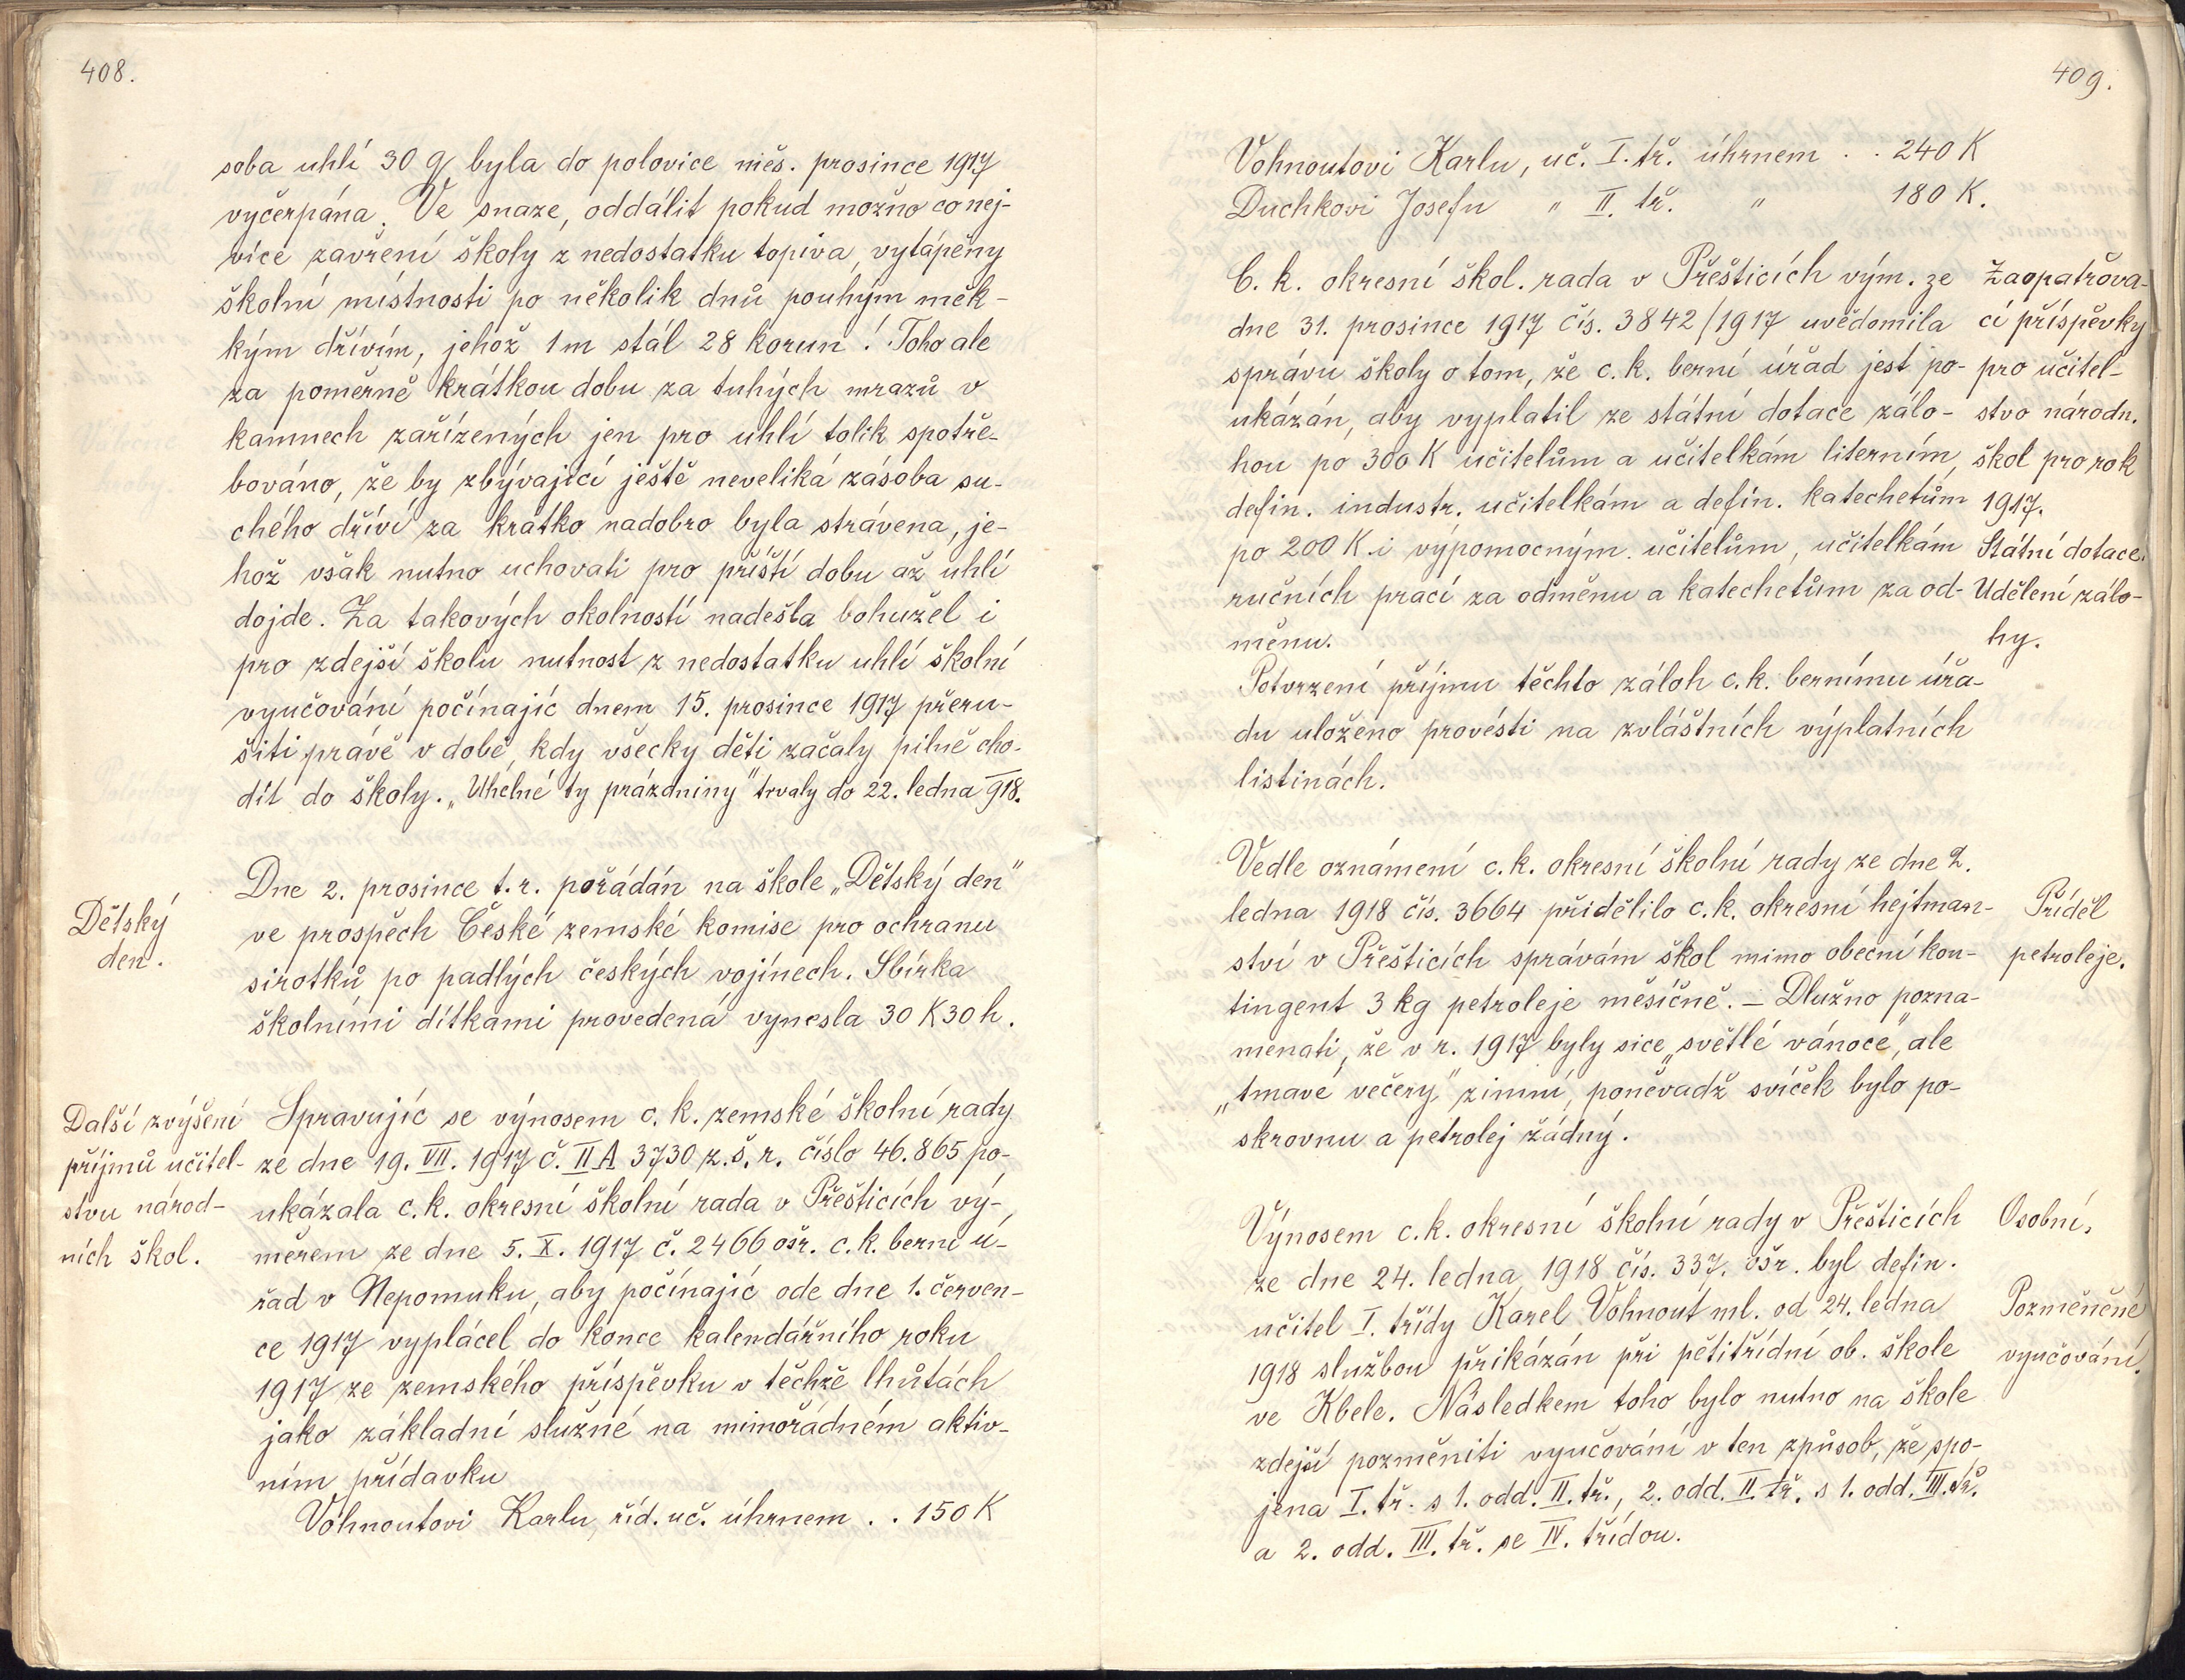 408.
soba uhlí 30 q byla do polovice měs. prosince 1917
vyčerpána. Ve snaze, oddálit pokud možno co nej-
více zavření školy z nedostatku topiva, vytápěny
školní místnosti po několik dnů pouhým měk-
kým dřívím, jehož 1 m stál 28 korun! Toho ale
za poměrně krátkou dobu za tuhých mrazů v
kamnech zařízených jen pro uhlí tolik spotře-
bováno, že by zbývající ještě neveliká zásoba su-
chého dříví za krátko nadobro byla strávena, je-
hož však nutno uchovati pro příští dobu až uhlí
dojde. Za takových okolností nadešla bohužel i
pro zdejší školu nutnost z nedostatku uhlí školní
vyučování počínajíc dnem 15. prosince 1917 přeru-
šiti právě v době, kdy všecky děti začaly pilně cho-
dit do školy. „Uhelné ty prázdniny" trvaly do 22. ledna 918.
Dětský
den.
Dne 2. prosince t. r. pořádán na škole „Dětský den"
ve prospěch České zemské komise pro ochranu
sirotků po padlých českých vojínech. Sbírka
školními dítkami provedená vynesla 30 K 30 h.
Další zvýšení
příjmů učitel-
stvu národ-
ních škol.
Spravujíc se výnosem c. k. zemské školní rady
ze dne 19. VII. 1917 č. II A 3730 z. š. r. číslo 46.865 po-
ukázala c. k. okresní školní rada v Přešticích vý-
měrem ze dne 5. X. 1917 č. 2466 ošr. c. k. berní ú-
řad v Nepomuku, aby počínajíc ode dne 1. červen-
ce 1917 vyplácel do konce kalendářního roku
1917 ze zemského příspěvku v těchže lhůtách
jako základní služné na mimořádném aktiv-
ním přídavku
Vohnoutovi Karlu, říd. uč. úhrnem . . 150 K
409.
Vohnoutovi Karlu, uč. I. tř. úhrnem . . 240 K
Duchkovi Josefu " II. tř. " 180 K.
C. k. okresní škol. rada v Přešticích vým. ze
dne 31. prosince 1917 čís. 3842/1917 uvědomila
správu školy o tom, že c. k. berní úřad jest po-
ukázán, aby vyplatil ze státní dotace zálo-
hou po 300 K učitelům a učitelkám literním,
defin. industr. učitelkám a defin. katechetům
po 200 K i výpomocným učitelům, učitelkám
ručních prací za odměnu a katechetům za od-
měnu.
Zaopatřova-
cí příspěvky
pro učitel-
stvo národn.
škol pro rok
1917.
Státní dotace.
Udělení zálo-
hy.
Potvrzení příjmu těchto záloh c. k. bernímu úřa-
du uloženo provésti na zvláštních výplatních
listinách.
Vedle oznámení c. k. okresní školní rady ze dne 2.
ledna 1918 čís. 3664 přidělilo c. k. okresní hejtman-
ství v Přešticích správám škol mimo obecní kon-
tingent 3 kg petroleje měsíčně. – Dlužno pozna-
menati, že v r. 1917 byly sice „světlé vánoce", ale
„tmavé večery" zimní, poněvadž svíček bylo po-
skrovnu a petrolej žádný.
Příděl
petroleje.
Výnosem c. k. okresní školní rady v Přešticích
ze dne 24. ledna 1918 čís. 337. ošr. byl defin.
učitel I. třídy Karel Vohnout ml. od 24. ledna
1918 službou přikázán při pětitřídní ob. škole
ve Kbele. Následkem toho bylo nutno na škole
zdejší pozměniti vyučování v ten způsob, že spo-
jena I. tř. s 1. odd. II. tř., 2. odd. II. tř. s 1. odd. III. tř.
a 2. odd. III. tř. se IV. třídou.
Osobní.
Pozměněné
vyučování.